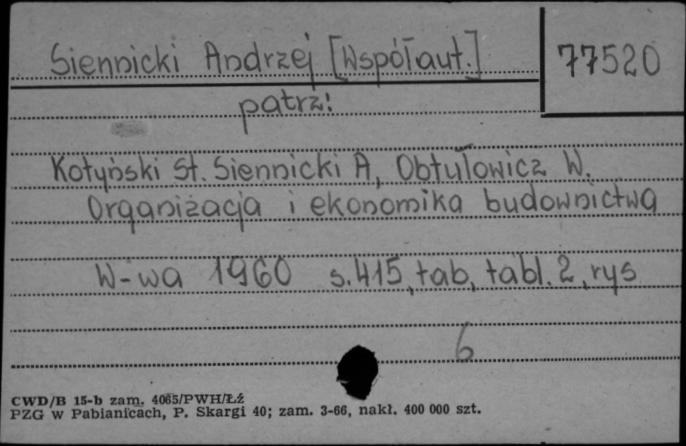 Siennicki Andrzej [Współaut.]
77520
patrz:
Kotyński St. Siennicki A, Obtułowicz W.
Organizacja i ekonomika budownictwa
W-wa 1960 s.415, tab, tabl. 2, rys
6
CWD/B 15-b zam. 4065/PWH/Łź
PZG w Pabianicach, P. Skargi 40; zam. 3-66, nakł. 400 000 szt.